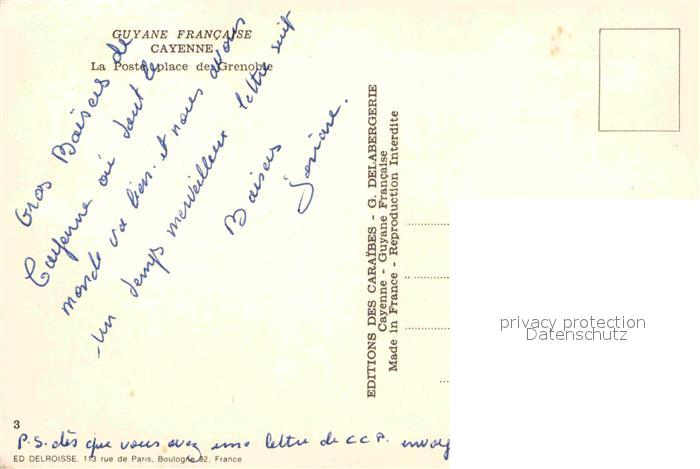 GUYANE FRANÇAISE
CAYENNE
La Poste, place de Grenoble
Gros Baisers de
Cayenne où tout le
monde va bien. et nous avons
un temps merveilleux lettre suit
Baisers
EDITIONS DES CARAÏBES - G. DELABERGERIE
Cayenne - Guyane Française
Made in France - Reproduction Interdite
privacy protection
Datenschutz
3
P.S. dès que vous avez une lettre de CCP. envoy
ED DELROISSE, 113 rue de Paris, Boulogne 92, France